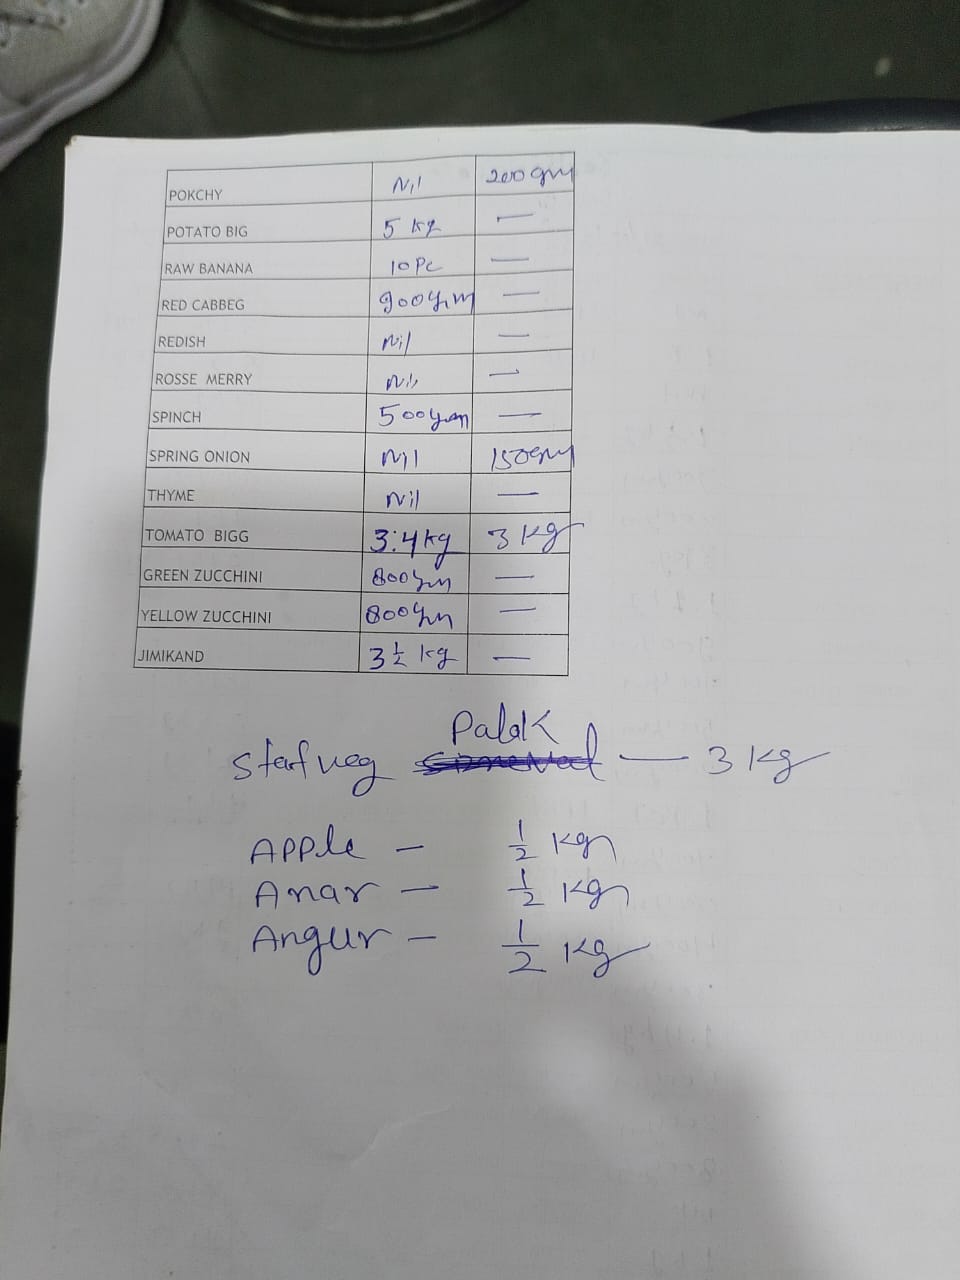 POKCHY Nil 200 gm
POTATO BIG 5 kg —
RAW BANANA 10 Pc —
RED CABBEG 900 gm —
REDISH Nil —
ROSSE MERRY Nil —
SPINCH 500 gm —
SPRING ONION Nil 150 gm
THYME Nil —
TOMATO BIGG 3.4 kg 3 kg
GREEN ZUCCHINI 800 gm —
YELLOW ZUCCHINI 800 gm —
JIMIKAND 3 1/2 kg —
staf veg Palak — 3 kg
Apple — 1/2 kg
Anar — 1/2 kg
Angur — 1/2 kg